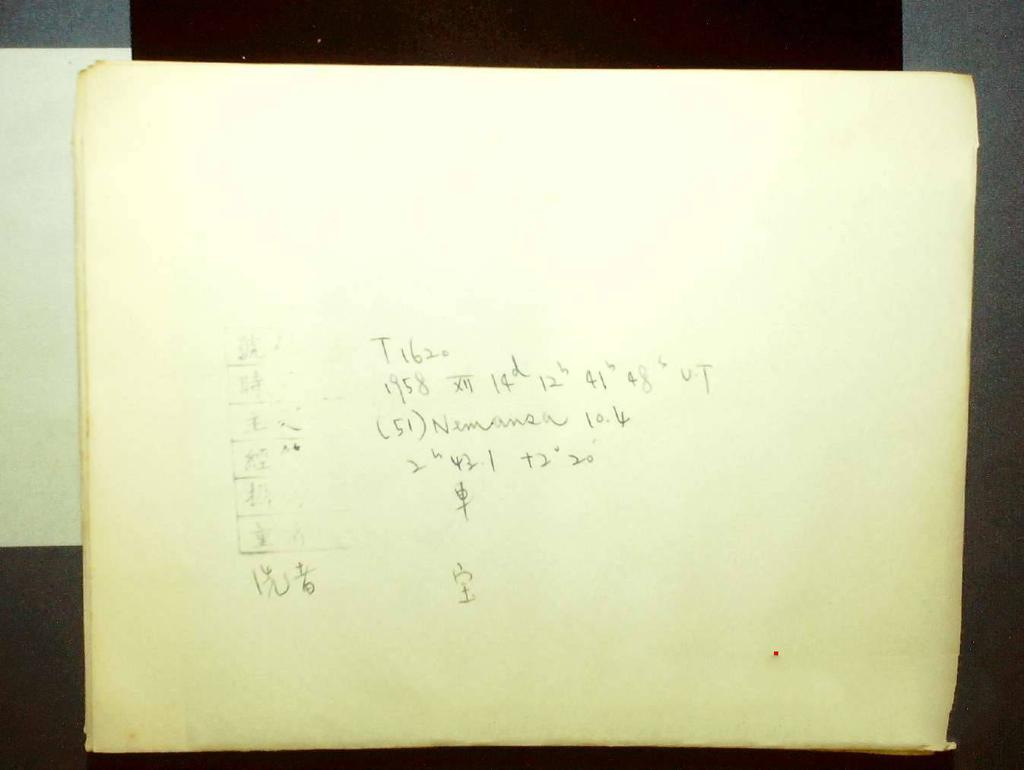 號 T1620
時 1958 XII 14d 12h 41h 48s U.T
主 (51) Nemansa 10.4
經 2h 42.1 +2° 20'
車
洗者 宝